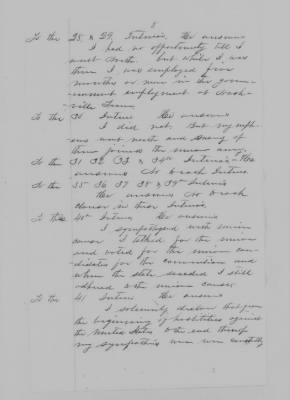 8
To the 28 & 29, Interis, He answers
I had no opportunity till I
went North but while I was
there I was employed five
months or more in the govern-
ment employment at Nash-
ville Tenn.
To the 30 Inter He answers
I did not. But my neph-
ews went north and many of
them joined the union army.
To the 31 32 33 & 34th Interis - He
answers No to each Inter.
To the 35 36 37 38 & 39th Interis
He answers No to each
clause in these Interis.
To the 40th Interis He answers
I sympathized with union
cause I talked for the union
and voted for the union can-
didates for the convention and
when the state seceded I still
adhered to the union cause.
To the 41 Inter He answers
I solemnly declare that from
the beginning of hostilities against
the United States to the end thereof
my sympathies were constantly